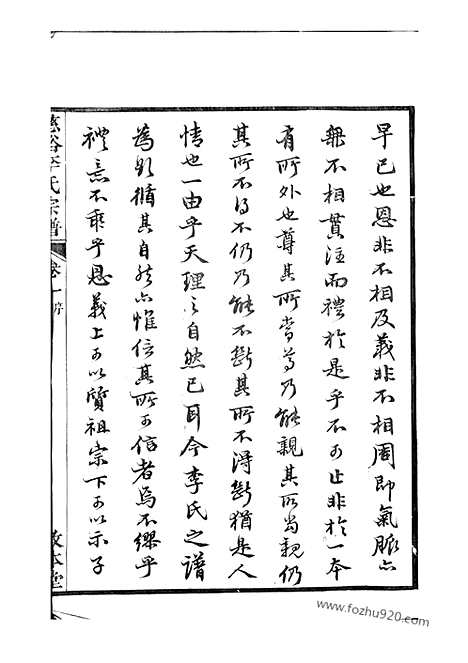 早已也恩非不相及義非不相周即氣脈亦
無不相貫注而禮於是乎不可止非於一本
有所外也尊其所當尊乃能親其所當親仍
其所不得不仍乃能不斷其所不得斷猶是人
情也一由乎天理之自然已耳今李氏之譜
為循其自然亦惟信其所可信者烏不繆乎
禮意不乖乎恩義上可以質祖宗下可以示子
慈谿李氏宗譜
卷一
序
敦本堂
www.fozhu920.com